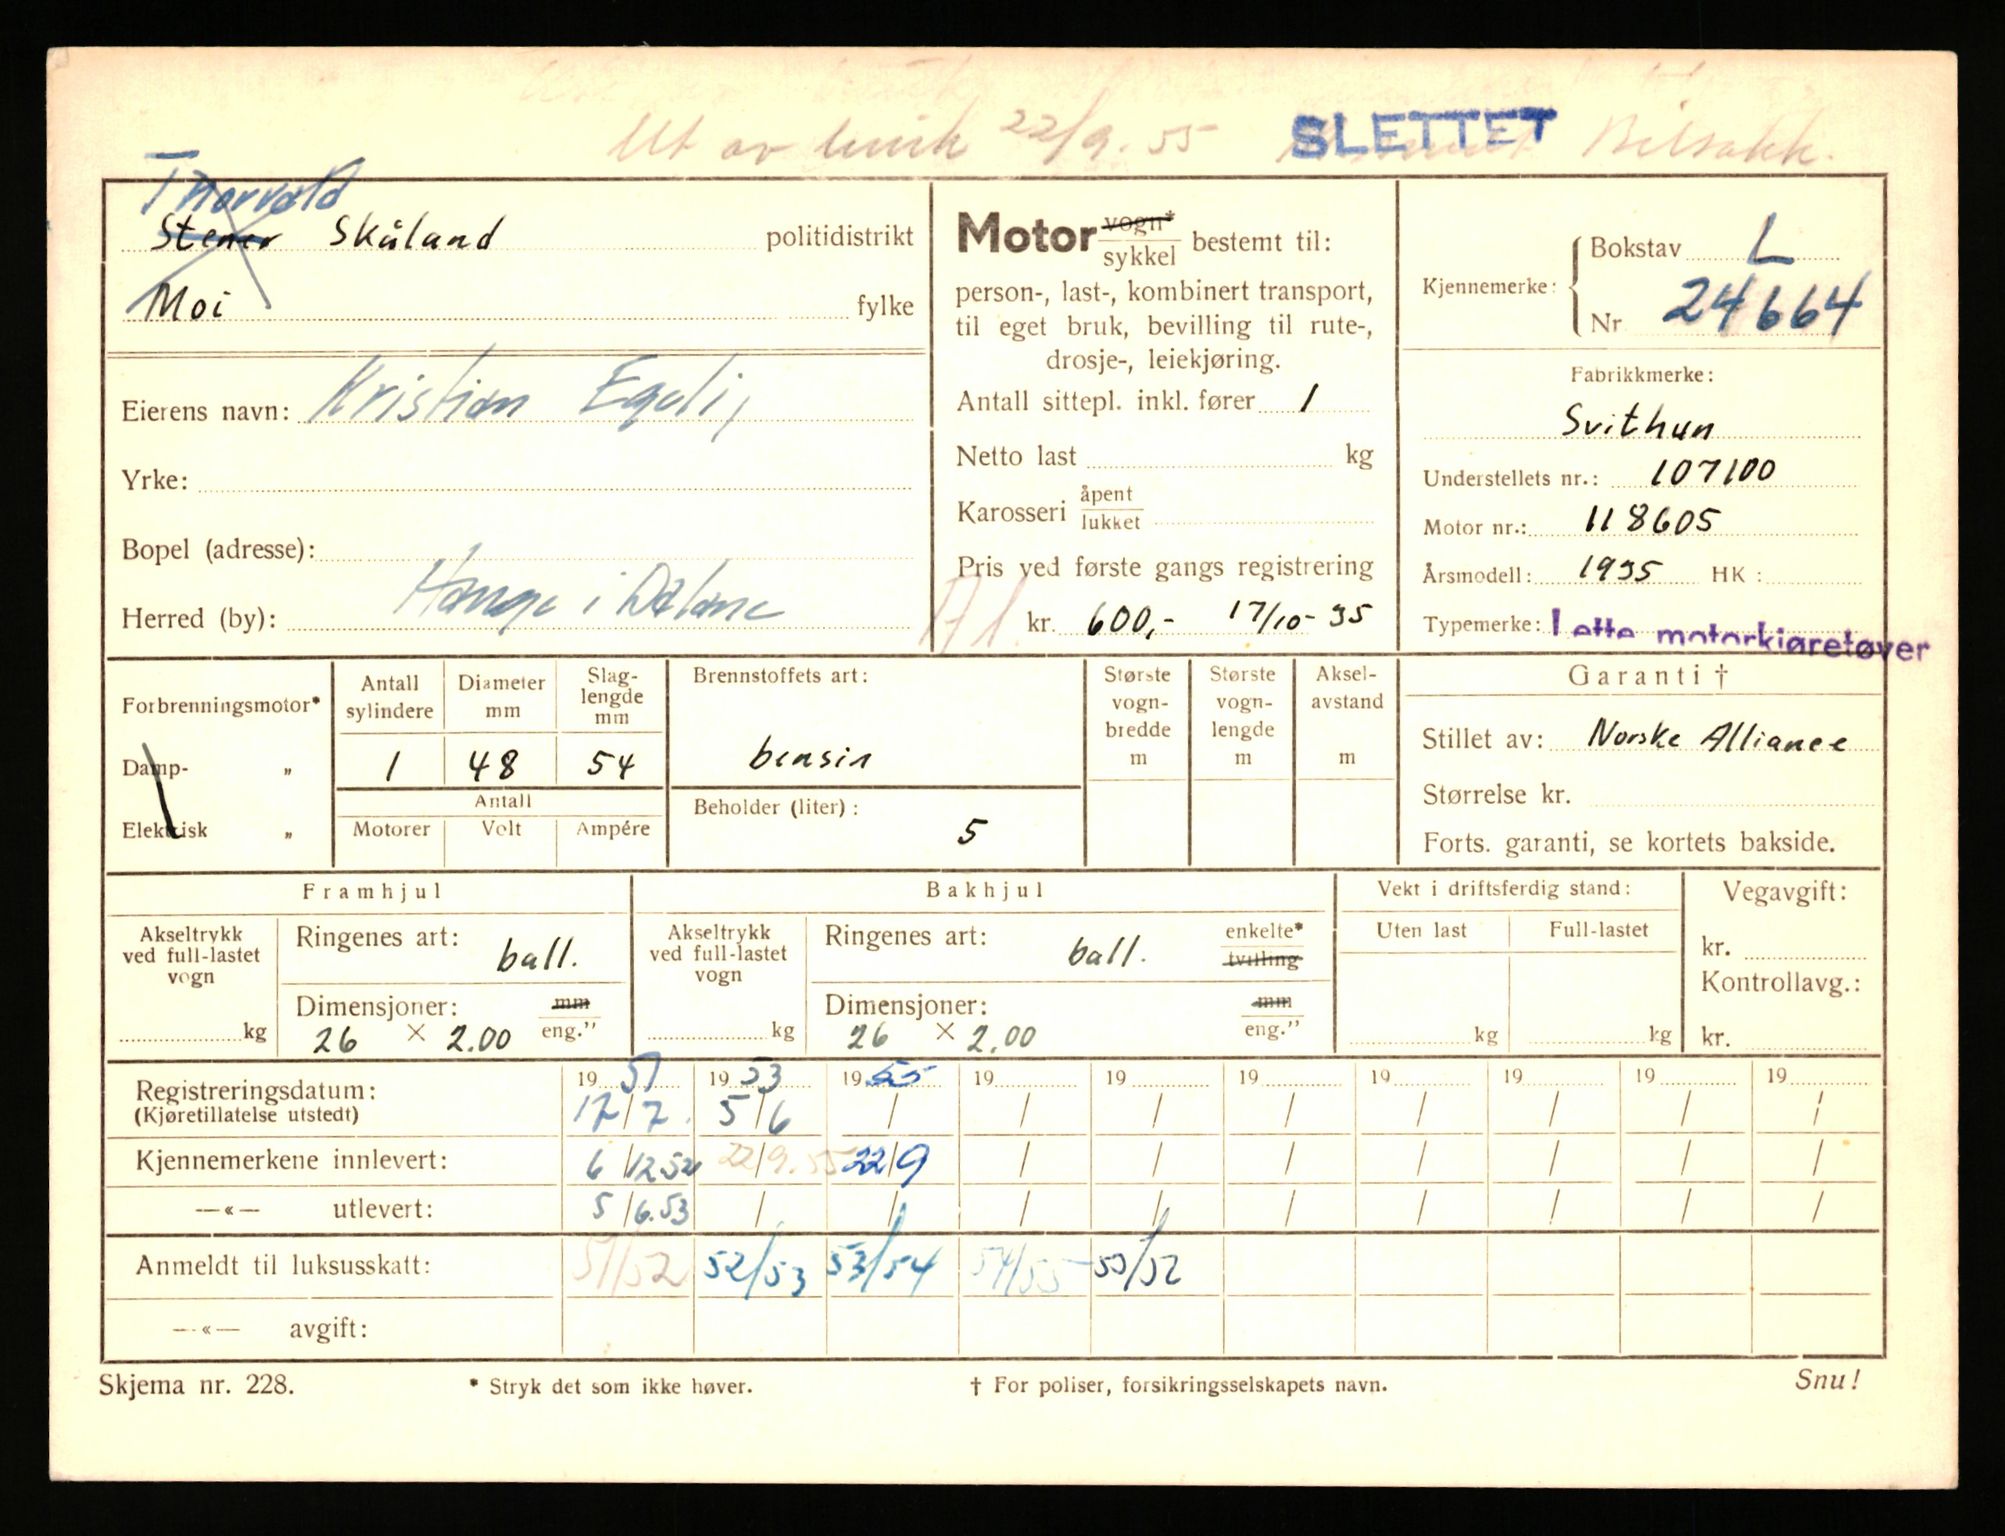 Ut av bruk 22/9. 55 SLETTET Bilsakk.
Thorvald
Stener Skåland politidistrikt
Moi fylke
Eierens navn: Kristian Egeli,
Yrke:
Bopel (adresse):
Herred (by): Hauge i Dalane
Motor vogn*
sykkel bestemt til:
person-, last-, kombinert transport,
til eget bruk, bevilling til rute-,
drosje-, leiekjøring.
Antall sittepl. inkl. fører 1
Netto last kg
Karosseri åpent
lukket
Pris ved første gangs registrering
kr. 600,- 17/10- 35
Kjennemerke: Bokstav L
Nr 24664
Fabrikkmerke:
Svithun
Understellets nr.: 107100
Motor nr.: 118605
Årsmodell: 1935 HK :
Typemerke: Lette motorkjøretøyer
Forbrenningsmotor*
Damp- „
Elektrisk „
Antall sylindere
Diameter mm
Slag-lengde mm
1 48 54
Antall
Motorer Volt Ampére
Brennstoffets art:
bensin
Beholder (liter) :
5
Største vogn-bredde m
Største vogn-lengde m
Aksel-avstand m
Garanti †
Stillet av: Norske Alliance
Størrelse kr.
Forts. garanti, se kortets bakside.
Framhjul
Akseltrykk
ved full-lastet
vogn
kg
Ringenes art:
ball.
Dimensjoner: mm
26 × 2.00 eng.”
Bakhjul
Akseltrykk
ved full-lastet
vogn
kg
Ringenes art: enkelte*
ball. tvilling
Dimensjoner: mm
26 × 2.00 eng.”
Vekt i driftsferdig stand:
Uten last Full-lastet
kg kg
Vegavgift:
kr.
Kontrollavg.:
kr.
Registreringsdatum: 19 51 19 53 19 55 19 19 19 19 19 19 19
(Kjøretillatelse utstedt) 12/7. 5/6 / / / / / / / /
Kjennemerkene innlevert: 6/12.52 22/9.55 22/9 / / / / / / /
—«— utlevert: 5/6.53 / / / / / / / / /
Anmeldt til luksusskatt: 51/52 52/53 53/54 54/55 55/52
—«— avgift:
Skjema nr. 228. * Stryk det som ikke høver. † For poliser, forsikringsselskapets navn. Snu!